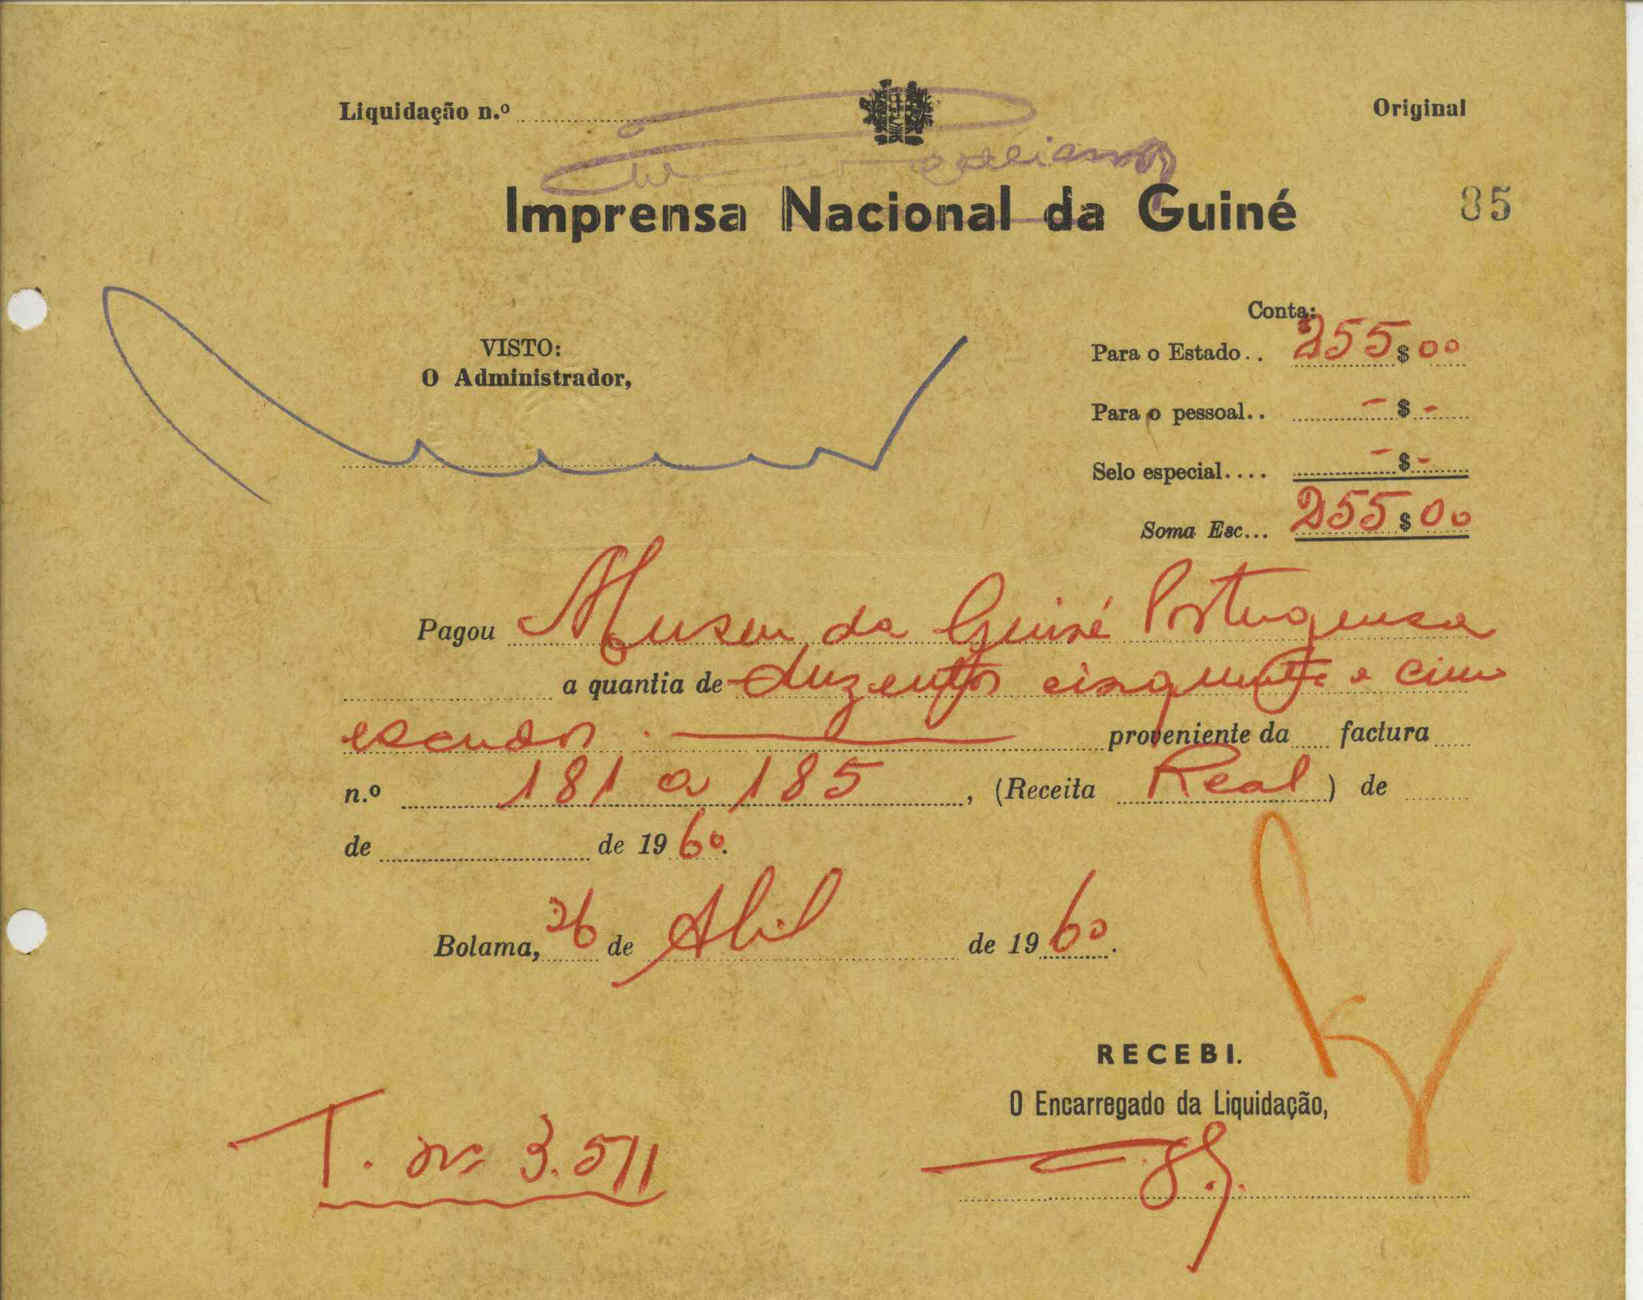 Liquidação n.º Original
Imprensa Nacional da Guiné 85
Conta:
VISTO:
O Administrador,
Para o Estado.. 255$00
Para o pessoal.. -$-
Selo especial.... -$-
Soma Esc... 255$00
Pagou Museu da Guiné Portuguesa
a quantia de duzentos cinquenta e cinco
escudos. proveniente da factura
n.º 181 a 185, (Receita Real) de
de de 1960.
Bolama, 26 de Abril de 1960.
RECEBI.
O Encarregado da Liquidação,
T. nº 3.511